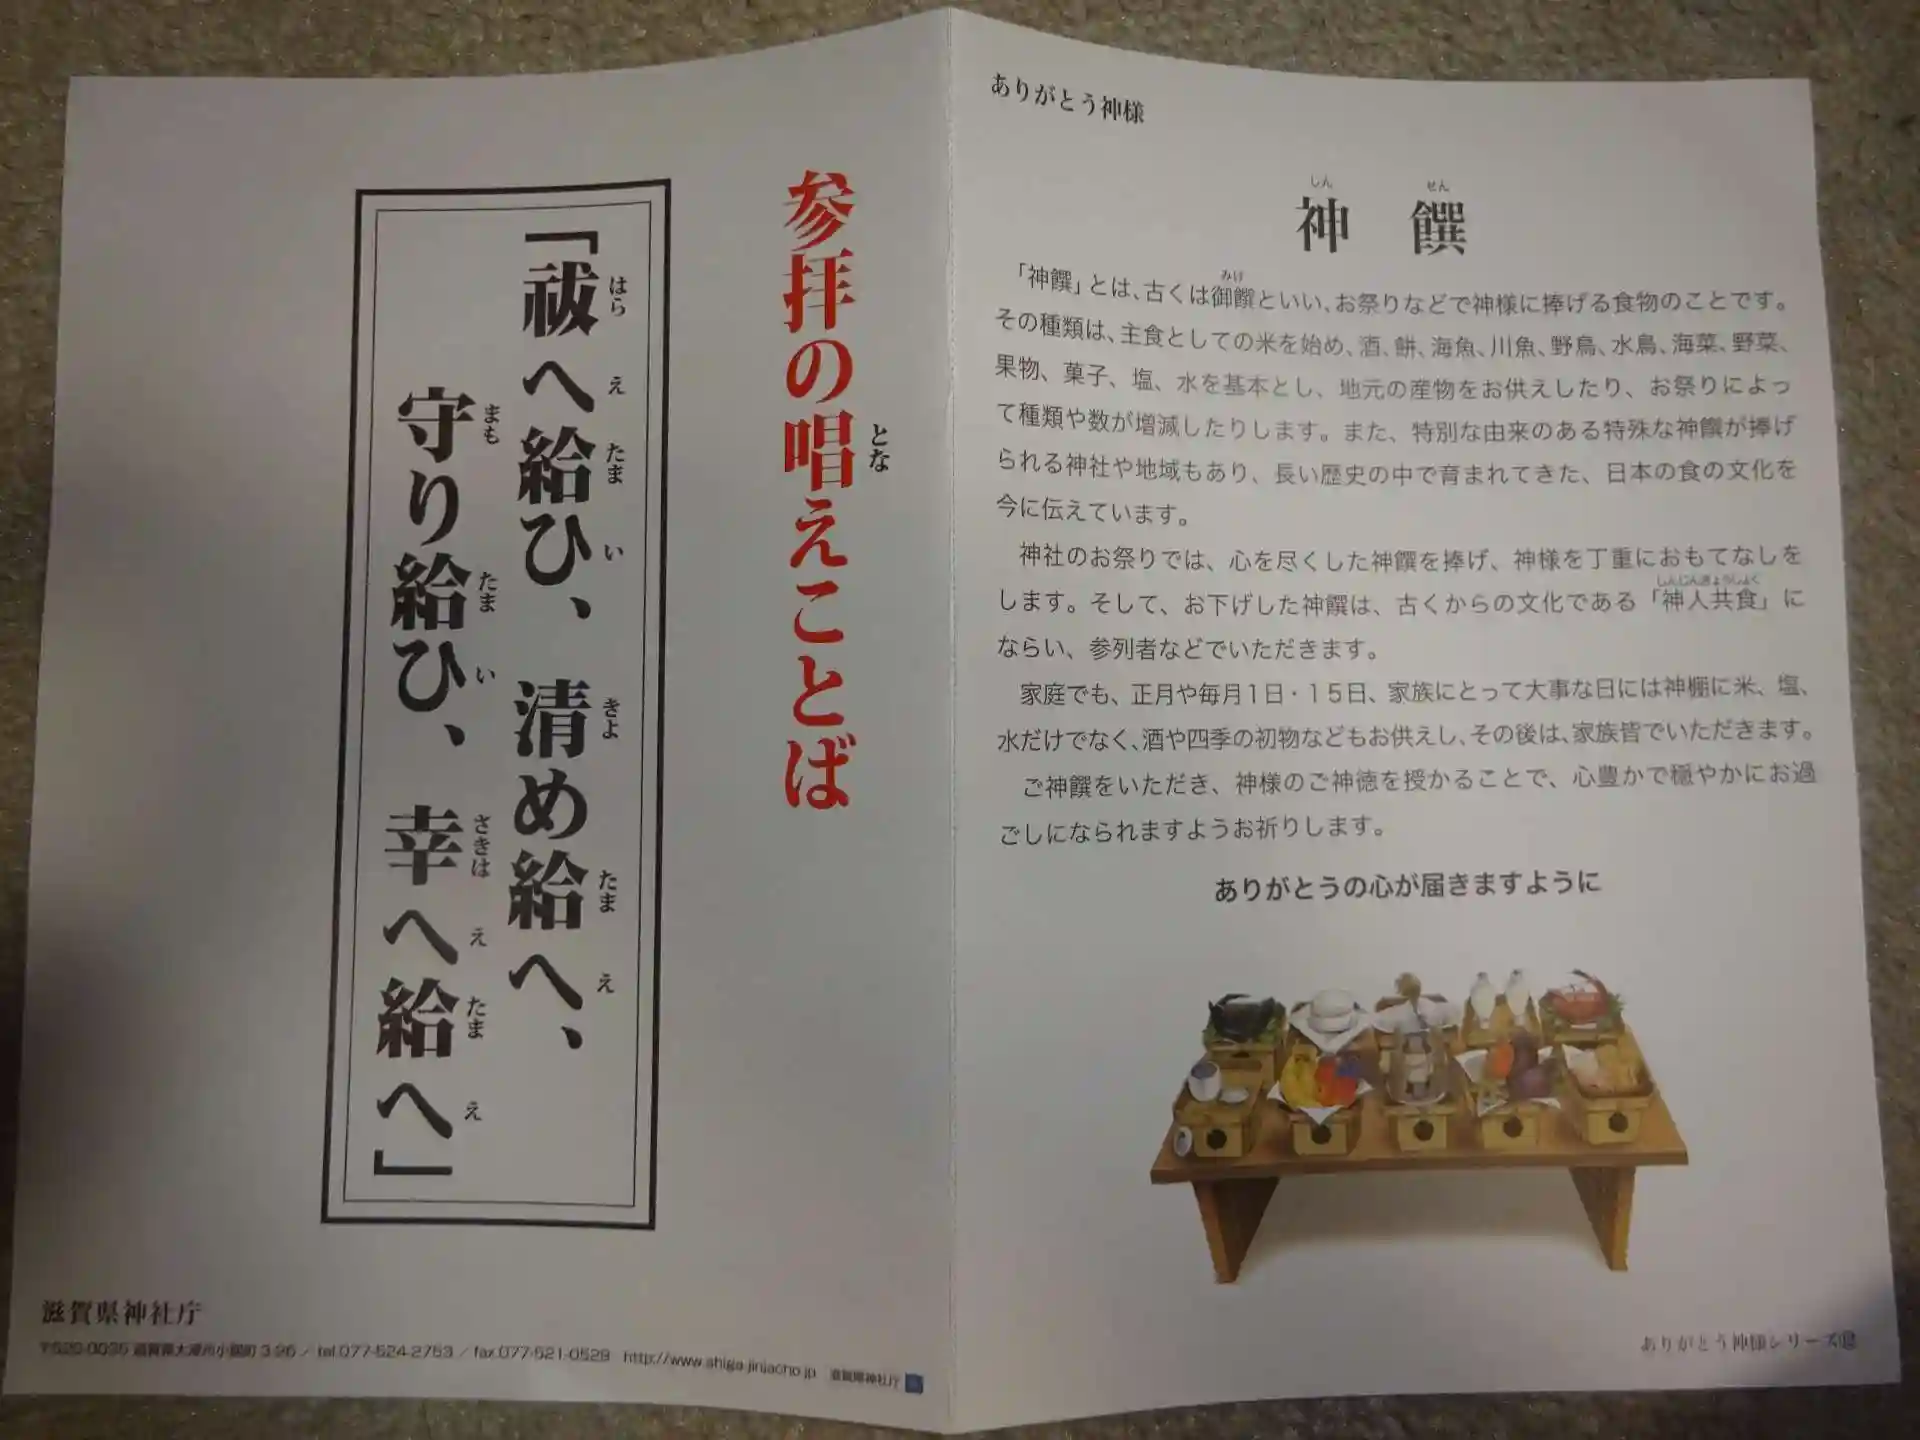 ありがとう神様
しん せん
神 饌
「神饌」とは、古くは御饌といい、お祭りなどで神様に捧げる食物のことです。
みけ
その種類は、主食としての米を始め、酒、餅、海魚、川魚、野鳥、水鳥、海菜、野菜、
果物、菓子、塩、水を基本とし、地元の産物をお供えしたり、お祭りによっ
て種類や数が増減したりします。また、特別な由来のある特殊な神饌が捧げ
られる神社や地域もあり、長い歴史の中で育まれてきた、日本の食の文化を
今に伝えています。
神社のお祭りでは、心を尽くした神饌を捧げ、神様を丁重におもてなしを
しんじんきょうしょく
します。そして、お下げした神饌は、古くからの文化である「神人共食」に
ならい、参列者などでいただきます。
家庭でも、正月や毎月1日・15日、家族にとって大事な日には神棚に米、塩、
水だけでなく、酒や四季の初物などもお供えし、その後は、家族皆でいただきます。
ご神饌をいただき、神様のご神徳を授かることで、心豊かで穏やかにお過
ごしになられますようお祈りします。
ありがとうの心が届きますように
ありがとう神様シリーズ
参拝の唱えことば
とな
「祓へ給ひ、清め給へ、
はら え たま い きよ たま え
守り給ひ、幸へ給へ」
まも たま い さきは え たま え
滋賀県神社庁
〒520-0035 滋賀県大津市小関町 3-26 / tel.077-524-2753 / fax.077-521-0529 http://www.shiga-jinjacho.jp 滋賀県神社庁